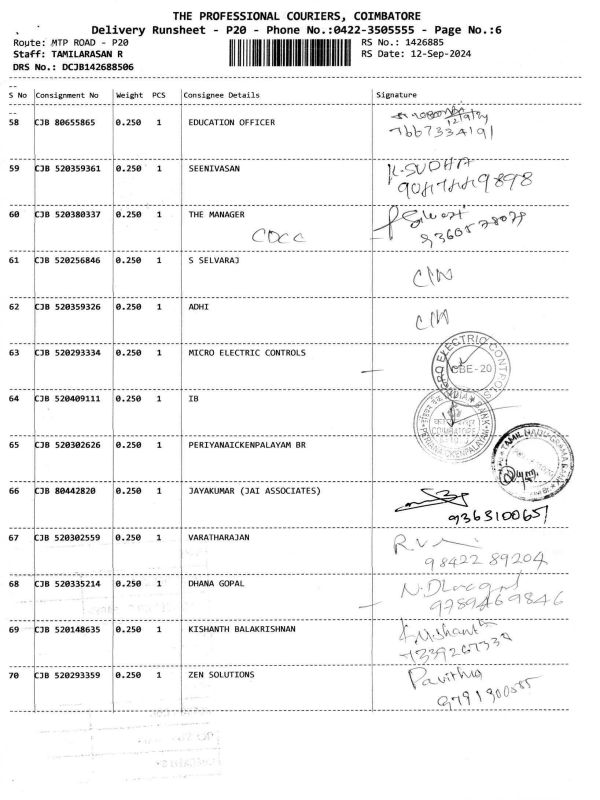 THE PROFESSIONAL COURIERS, COIMBATORE
Delivery Runsheet - P20 - Phone No.:0422-3505555 - Page No.:6
Route: MTP ROAD - P20 RS No.: 1426885
Staff: TAMILARASAN R RS Date: 12-Sep-2024
DRS No.: DCJB142688506
S No Consignment No Weight PCS Consignee Details Signature
58 CJB 80655865 0.250 1 EDUCATION OFFICER
12/9/24
7667334191
59 CJB 520359361 0.250 1 SEENIVASAN K.SUDHA
9898
60 CJB 520380337 0.250 1 THE MANAGER
CDCC
61 CJB 520256846 0.250 1 S SELVARAJ
62 CJB 520359326 0.250 1 ADHI
63 CJB 520293334 0.250 1 MICRO ELECTRIC CONTROLS
MICRO ELECTRIC CONTROLS
CBE-20
64 CJB 520409111 0.250 1 IB
INDIAN BANK
COIMBATORE
65 CJB 520302626 0.250 1 PERIYANAICKENPALAYAM BR
TAMIL NADU GRAMA BANK
66 CJB 80442820 0.250 1 JAYAKUMAR (JAI ASSOCIATES)
9363100651
67 CJB 520302559 0.250 1 VARATHARAJAN
98422 89204
68 CJB 520335214 0.250 1 DHANA GOPAL
9789469846
69 CJB 520148635 0.250 1 KISHANTH BALAKRISHNAN Kishanth
70 CJB 520293359 0.250 1 ZEN SOLUTIONS Pavithra